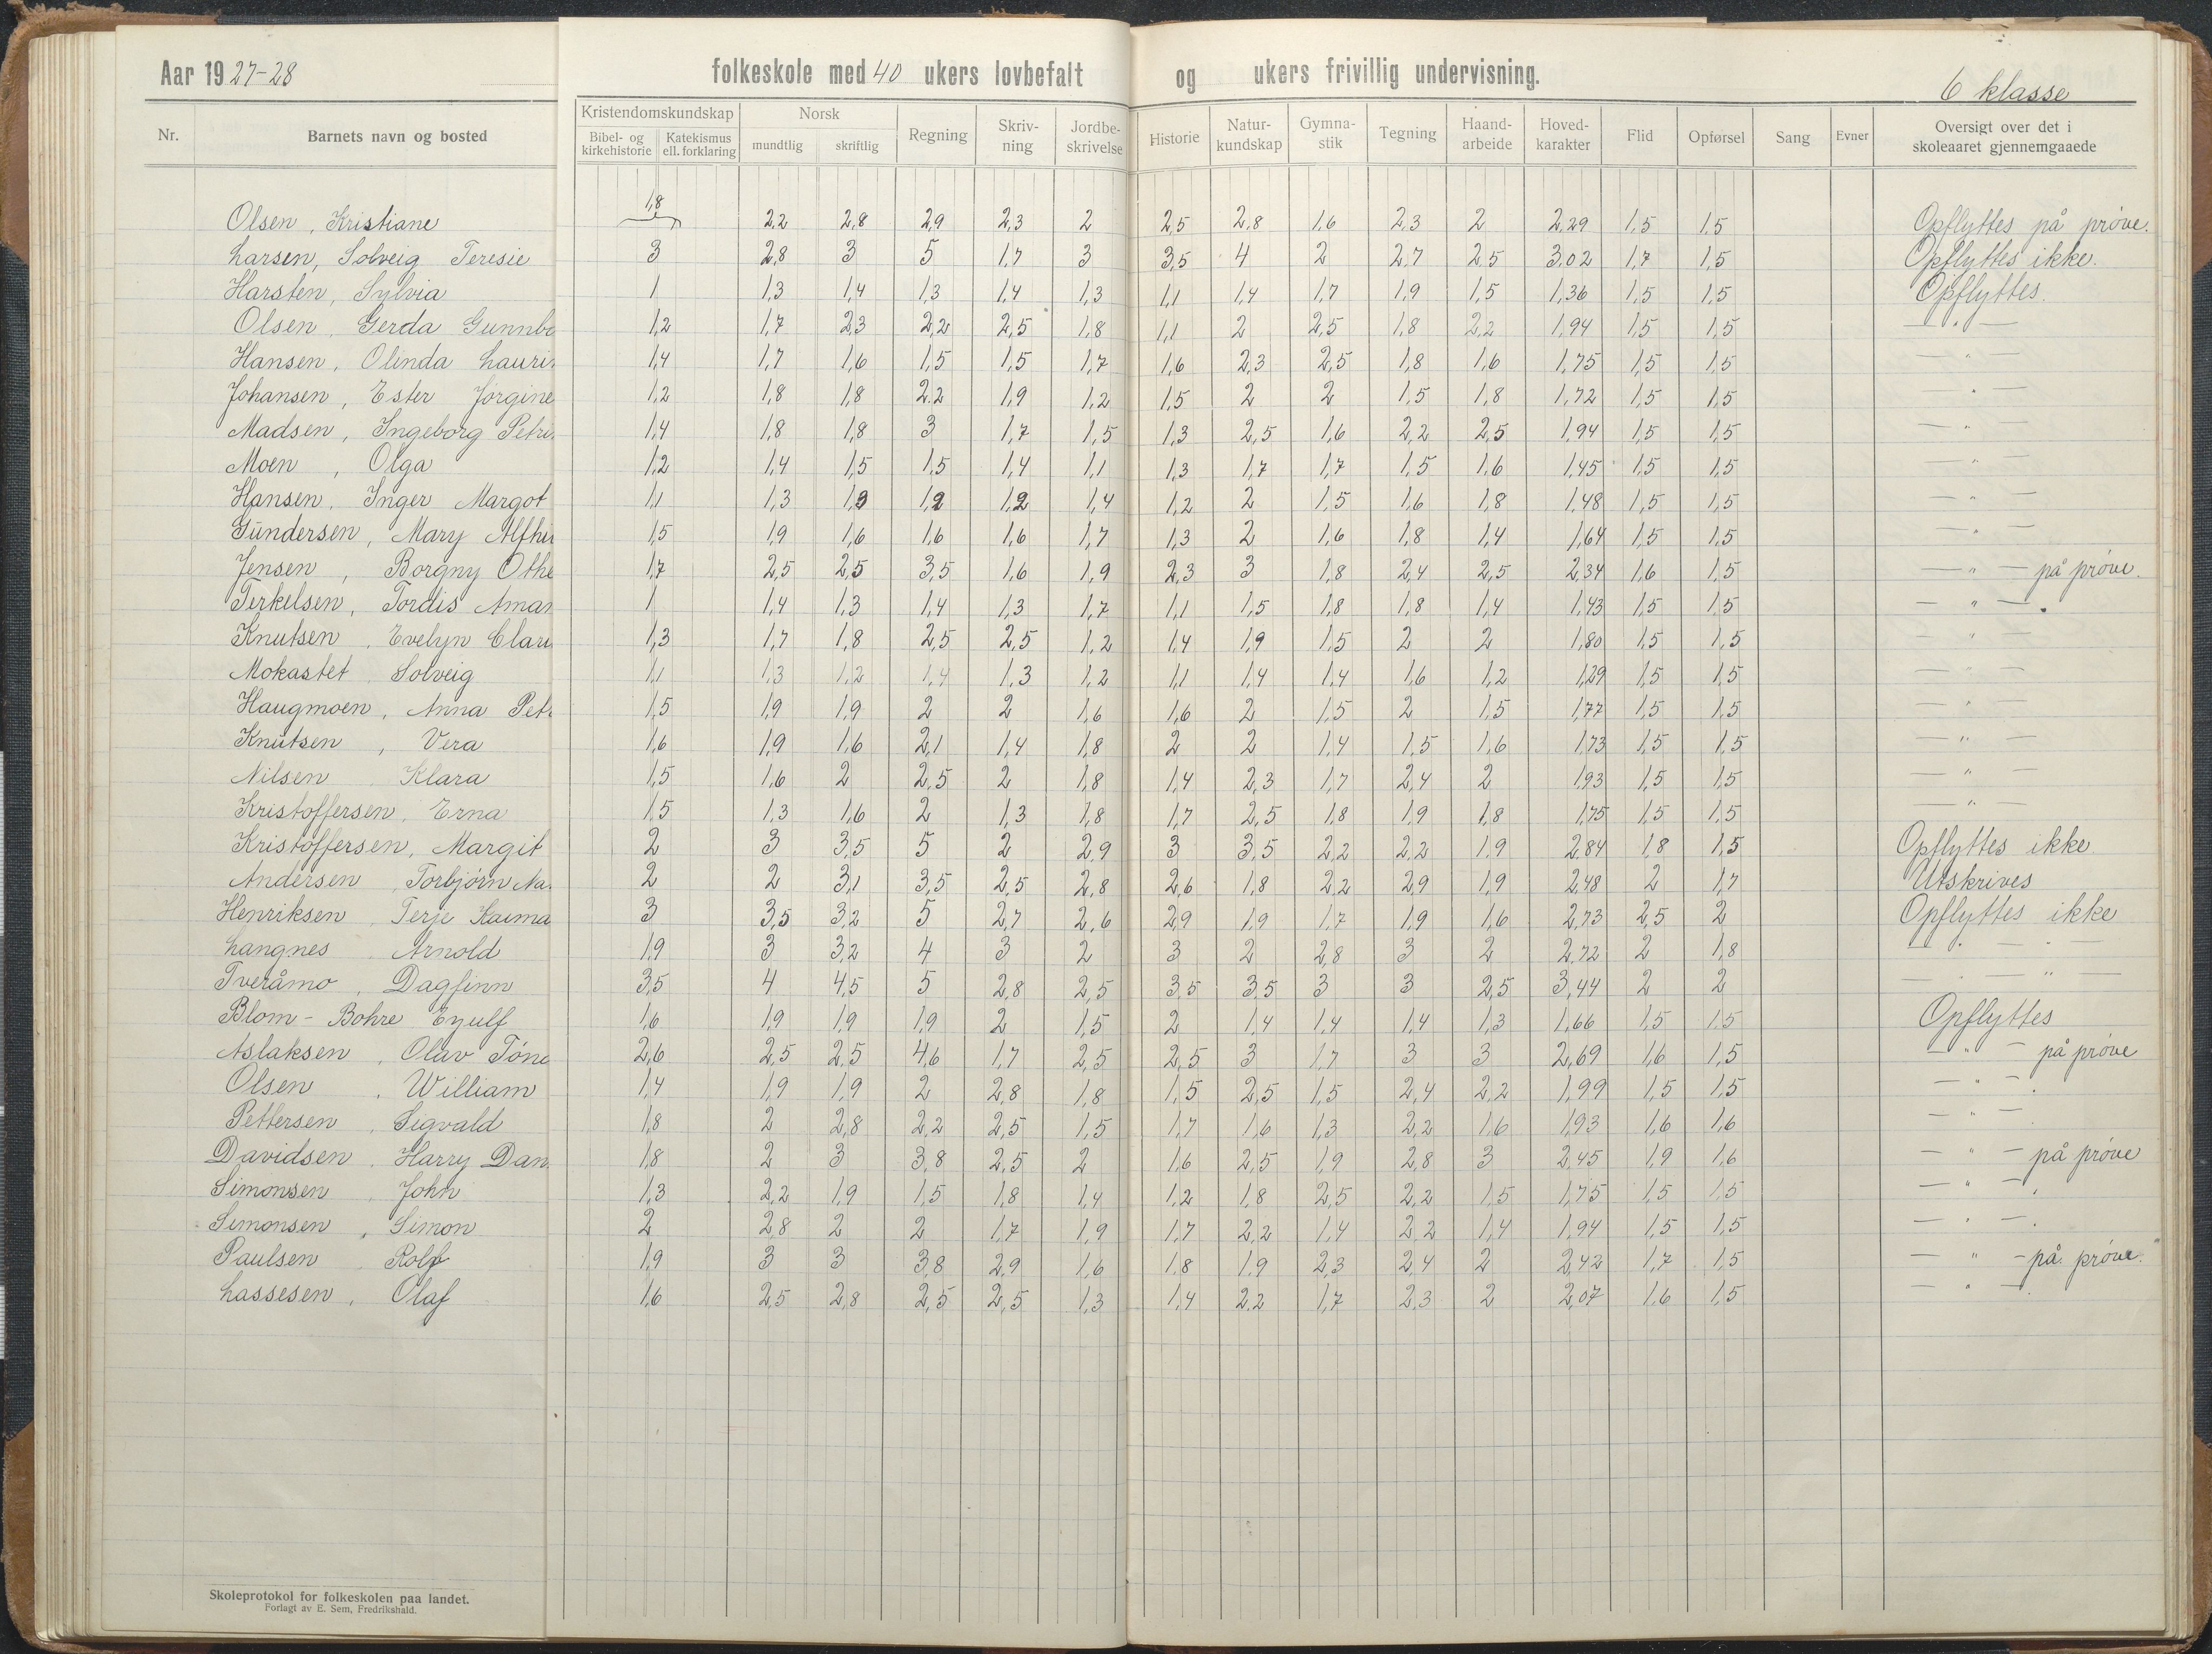 Aar 1927-28 folkeskole med 40 ukers lovbefalt og ukers frivillig undervisning.
6 klasse
Nr. Barnets navn og bosted Kristendomskundskap Norsk Regning Skriv-ning Jordbe-skrivelse Historie Natur-kundskap Gymna-stik Tegning Haand-arbeide Hoved-karakter Flid Opførsel Sang Evner Oversigt over det i skoleaaret gjennemgaaede
Bibel- og kirkehistorie Katekismus ell. forklaring mundtlig skriftlig
Olsen, Kristiane 1,8 2,2 2,8 2,9 2,3 2 2,5 2,8 1,6 2,3 2 2,29 1,5 1,5 Opflyttes på prøve.
Larsen, Solveig Teresie 3 2,8 3 5 1,7 3 3,5 4 2 2,7 2,5 3,02 1,7 1,5 Opflyttes ikke.
Harsten, Sylvia 1 1,3 1,4 1,3 1,4 1,3 1,1 1,4 1,7 1,9 1,5 1,36 1,5 1,5 Opflyttes.
Olsen, Gerda Gunnbo 1,2 1,7 2,3 2,2 2,5 1,8 1,1 2 2,5 1,8 2,2 1,94 1,5 1,5 — " —
Hansen, Olinda Laurin 1,4 1,7 1,6 1,5 1,5 1,7 1,6 2,3 2,5 1,8 1,6 1,75 1,5 1,5 — " —
Johansen, Ester Jørgine 1,2 1,8 1,8 2,2 1,9 1,2 1,5 2 2 1,5 1,8 1,72 1,5 1,5 — " —
Madsen, Ingeborg Petri 1,4 1,8 1,8 3 1,7 1,5 1,3 2,5 1,6 2,2 2,5 1,94 1,5 1,5 — " —
Moen, Olga 1,2 1,4 1,5 1,5 1,4 1,1 1,3 1,7 1,7 1,5 1,6 1,45 1,5 1,5 — " —
Hansen, Inger Margot 1,1 1,3 1,9 1,2 1,2 1,4 1,2 2 1,5 1,6 1,8 1,48 1,5 1,5 — " —
Gundersen, Mary Alfhi 1,5 1,9 1,6 1,6 1,6 1,7 1,3 2 1,6 1,8 1,4 1,64 1,5 1,5 — " —
Jensen, Borgny Othe 1,7 2,5 2,5 3,5 1,6 1,9 2,3 3 1,8 2,4 2,5 2,34 1,6 1,5 — " — på prøve.
Terkelsen, Tordis Aman 1 1,4 1,3 1,4 1,3 1,7 1,1 1,5 1,8 1,8 1,4 1,43 1,5 1,5 — " —
Knutsen, Evelyn Clar 1,3 1,7 1,8 2,5 2,5 1,2 1,4 1,9 1,5 2 2 1,80 1,5 1,5 — " —
Mokastet Solveig 1,1 1,3 1,2 1,4 1,3 1,2 1,1 1,4 1,4 1,6 1,2 1,29 1,5 1,5 — " —
Haugmoen, Anna Pet 1,5 1,9 1,9 2 2 1,6 1,6 2 1,5 2 1,5 1,77 1,5 1,5 — " —
Knutsen, Vera 1,6 1,9 1,6 2,1 1,4 1,8 2 2 1,4 1,5 1,6 1,73 1,5 1,5 — " —
Nilsen Klara 1,5 1,6 2 2,5 2 1,8 1,4 2,3 1,7 2,4 2 1,93 1,5 1,5 — " —
Kristoffersen, Erna 1,5 1,3 1,6 2 1,3 1,8 1,7 2,5 1,8 1,9 1,8 1,75 1,5 1,5 — " —
Kristoffersen, Margit 2 3 3,5 5 2 2,9 3 3,5 2,2 2,2 1,9 2,84 1,8 1,5 Opflyttes ikke
Andersen, Torbjørn Na 2 2 3,1 3,5 2,5 2,8 2,6 1,8 2,2 2,9 1,9 2,48 2 1,7 Utskrives
Henriksen, Terje Kaima 3 3,5 3,2 5 2,7 2,6 2,9 1,9 1,7 1,9 1,6 2,73 2,5 2 Opflyttes ikke
Langnes Arnold 1,9 3 3,2 4 3 2 3 2 2,8 3 2 2,72 2 1,8 — " — " —
Tveråmo, Dagfinn 3,5 4 4,5 5 2,8 2,5 3,5 3,5 3 3 2,5 3,44 2 2 — " — " —
Blom-Bohre Eyulf 1,6 1,9 1,9 1,9 2 1,5 2 1,4 1,4 1,4 1,3 1,66 1,5 1,5 Opflyttes
Aslaksen, Olav Tøne 2,6 2,5 2,5 4,6 1,7 2,5 2,5 3 1,7 3 3 2,69 1,6 1,5 — " — på prøve
Olsen, William 1,4 1,9 1,9 2 2,8 1,8 1,5 2,5 1,5 2,4 2,2 1,99 1,5 1,5 — " —
Pettersen, Sigvald 1,8 2 2,8 2,2 2,5 1,5 1,7 1,6 1,3 2,2 1,6 1,93 1,6 1,6 — " —
Davidsen, Harry Dan 1,8 2 3 3,8 2,5 2 1,6 2,5 1,9 2,8 3 2,45 1,9 1,6 — " — på prøve
Simonsen, John 1,3 2,2 1,9 1,5 1,8 1,4 1,2 1,8 2,5 2,2 1,5 1,75 1,5 1,5 — " —
Simonsen, Simon 2 2,8 2 2 1,7 1,9 1,7 2,2 1,4 2,2 1,4 1,94 1,5 1,5 — " —
Paulsen Rolf 1,9 3 3 3,8 2,9 1,6 1,8 1,9 2,3 2,4 2 2,42 1,7 1,5 — " — på prøve.
Lassesen, Olaf 1,6 2,5 2,8 2,5 2,5 1,3 1,4 2,2 1,7 2,3 2 2,07 1,6 1,5 — " —
Skoleprotokol for folkeskolen paa landet.
Forlagt av E. Sem, Fredrikshald.